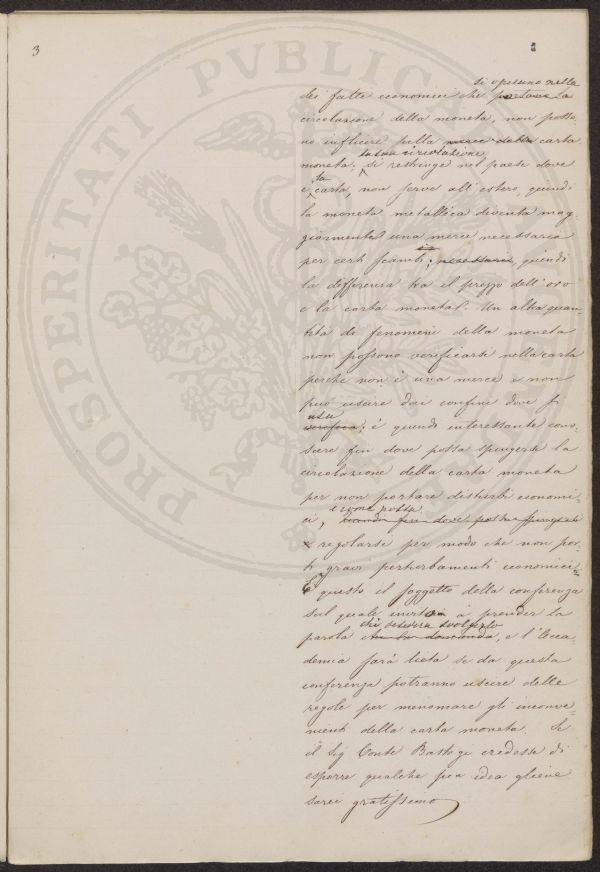 3
si operano nella
dei fatti economici che portano la
circolazione della moneta, non posso
no influire sulla merce della carta
la sua circolazione
moneta; si restringe nel paese dove
ta
è carta, non serve all'estero, quindi
la moneta metallica diventa mag
giormente una merce necessaria
per certi scambi; necessari, quindi
la differenza tra il prezzo dell'oro
e la carta moneta. Un altra quan
tità di fenomeni della moneta
non possono verificarsi nella carta
perché non è una merce e non
può uscire dai confini dove si
usa
verifica; è quindi interessante cono
scere fin dove possa spingersi la
circolazione della carta moneta
per non portare disturbi economi
e come possa
ci, fin dove possa spingersi
e regolarsi per modo che non por
ti gravi perturbamenti economici
È questo il soggetto della conferenza
sul quale invito a prender la
chi desidera svolgerlo
parola domanda, e l'Acca
demia sarà lieta se da questa
conferenza potranno uscire delle
regole per menomare gl'inconve
nienti della carta moneta. Se
il Sig Conte Bastogi credesse di
esporre qualche sua idea gliene
sarei gratissimo
PROSPERITATI PVBLICAE